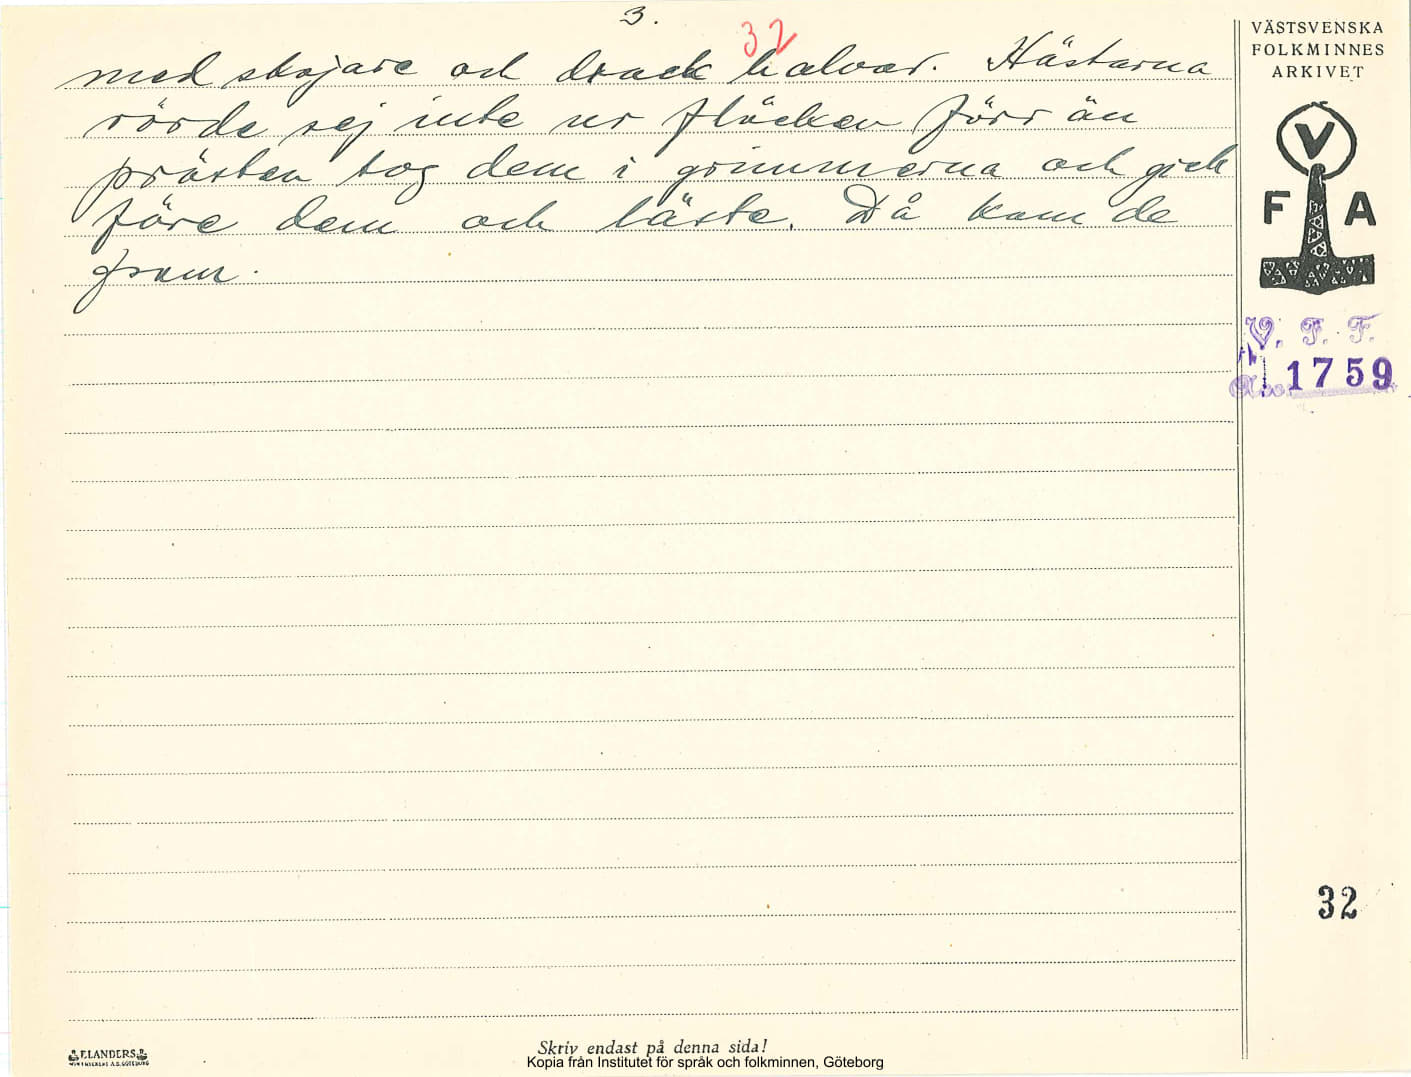 3.
32
med skojare och drack halvor. Hästarna
rörde sej inte ur fläcken förr än
prästen tog dem i grimmorna och gick
före dem och läste. Då kom de
fram.
VÄSTSVENSKA
FOLKMINNES
ARKIVET
V
F A
V. F. F.
1759
32
ELANDERS
Skriv endast på denna sida!
Kopia från Institutet för språk och folkminnen, Göteborg